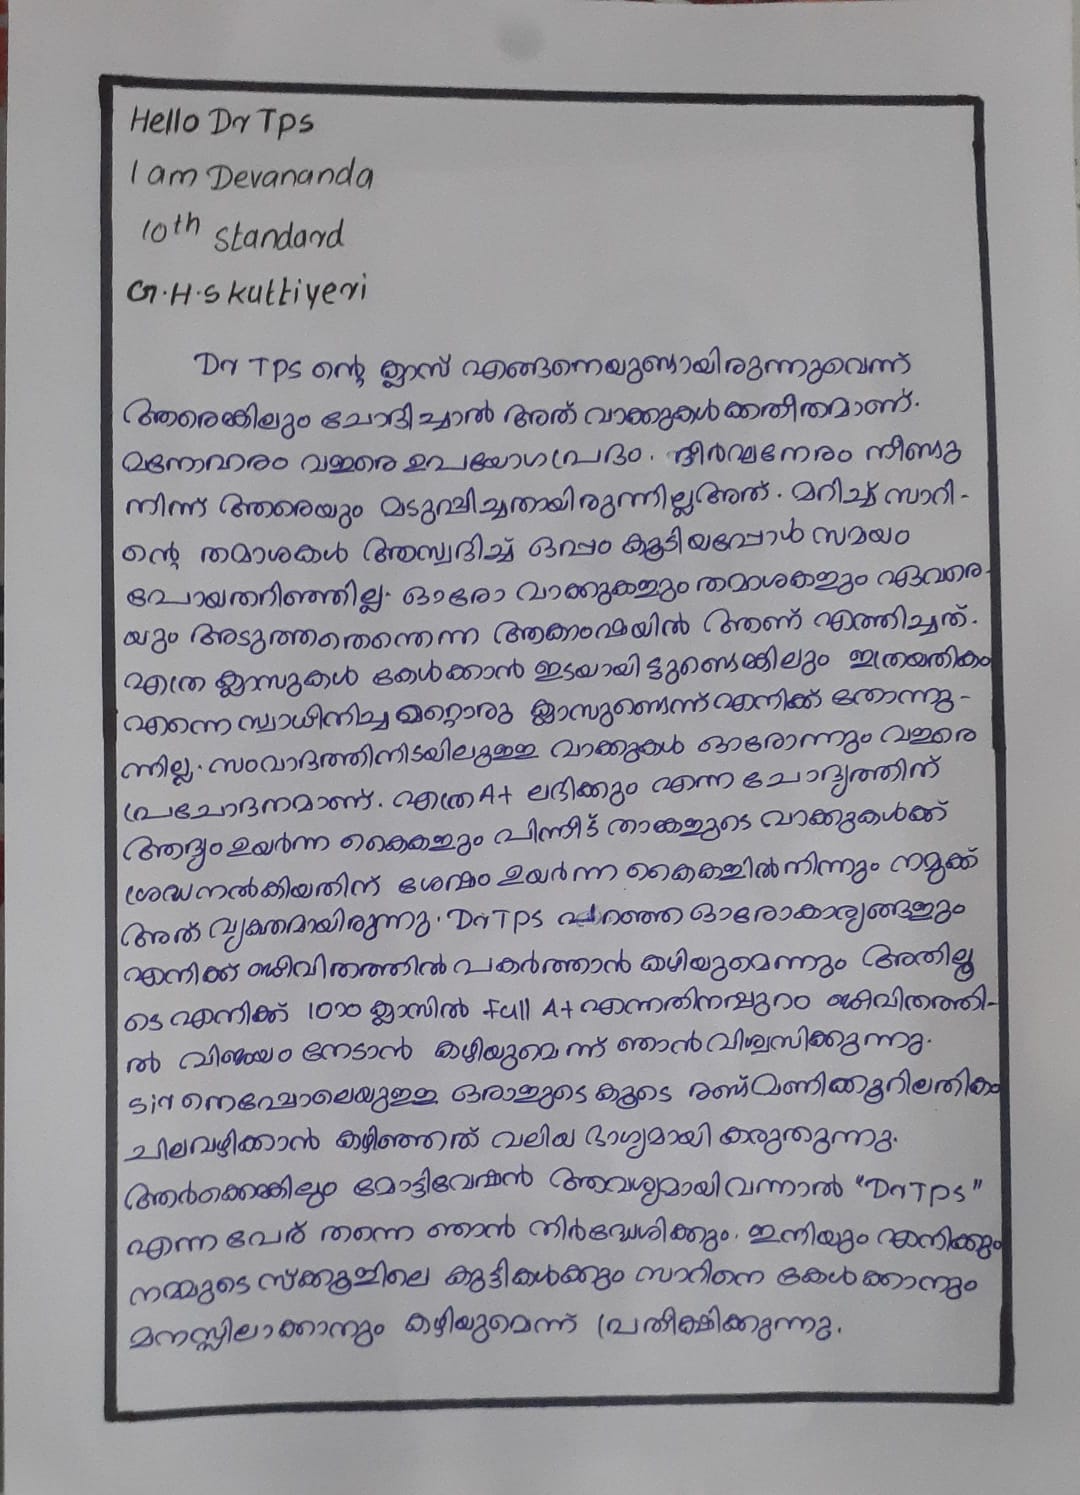 Hello Dr Tps
I am Devananda
10th Standard
G.H.S Kuttiyeri
Dr TPS ന്റെ ക്ലാസ് എങ്ങനെയുണ്ടായിരുന്നുവെന്ന്
ആരെങ്കിലും ചോദിച്ചാൽ അത് വാക്കുകൾക്കതീതമാണ്.
മനോഹരം വളരെ ഉപയോഗപ്രദം. ദീർഘനേരം നീണ്ടു
നിന്ന് ആരെയും മടുപ്പിച്ചതായിരുന്നില്ല അത്. മറിച്ച് സാറി-
ന്റെ തമാശകൾ ആസ്വദിച്ച് ഒപ്പം കൂടിയപ്പോൾ സമയം
പോയതറിഞ്ഞില്ല. ഓരോ വാക്കുകളും തമാശകളും ഏവരെ-
യും അടുത്തതെന്തെന്ന ആകാംഷയിൽ ആണ് എത്തിച്ചത്.
എത്ര ക്ലാസുകൾ കേൾക്കാൻ ഇടയായിട്ടുണ്ടെങ്കിലും ഇത്രയതികം
എന്നെ സ്വാധീനിച്ച മറ്റൊരു ക്ലാസുണ്ടെന്ന് എനിക്ക് തോന്നു-
ന്നില്ല. സംവാദത്തിനിടയിലുള്ള വാക്കുകൾ ഓരോന്നും വളരെ
പ്രചോദനമാണ്. എത്ര A+ ലഭിക്കും എന്ന ചോദ്യത്തിന്
ആദ്യം ഉയർന്ന കൈകളും പിന്നീട് താങ്കളുടെ വാക്കുകൾക്ക്
ശ്രദ്ധനൽകിയതിന് ശേഷം ഉയർന്ന കൈകളിൽ നിന്നും നമുക്ക്
അത് വ്യക്തമായിരുന്നു. Dr TPS പറഞ്ഞ ഓരോകാര്യങ്ങളും
എനിക്ക് ജീവിതത്തിൽ പകർത്താൻ കഴിയുമെന്നും അതിലൂ
ടെ എനിക്ക് 10ാം ക്ലാസിൽ full A+ എന്നതിനപ്പുറം ജീവിതത്തി-
ൽ വിജയം നേടാൻ കഴിയുമെന്ന് ഞാൻ വിശ്വസിക്കുന്നു.
sir നെപ്പോലെയുള്ള ഒരാളുടെ കൂടെ രണ്ട് മണിക്കൂറിലതികം
ചിലവഴിക്കാൻ കഴിഞ്ഞത് വലിയ ഭാഗ്യമായി കരുതുന്നു.
ആർക്കെങ്കിലും മോട്ടിവേഷൻ ആവശ്യമായി വന്നാൽ "Dr Tps"
എന്ന പേര് തന്നെ ഞാൻ നിർദ്ദേശിക്കും. ഇനിയും എനിക്കും
നമ്മുടെ സ്ക്കൂളിലെ കുട്ടികൾക്കും സാറിനെ കേൾക്കാനും
മനസ്സിലാക്കാനും കഴിയുമെന്ന് പ്രതീക്ഷിക്കുന്നു.